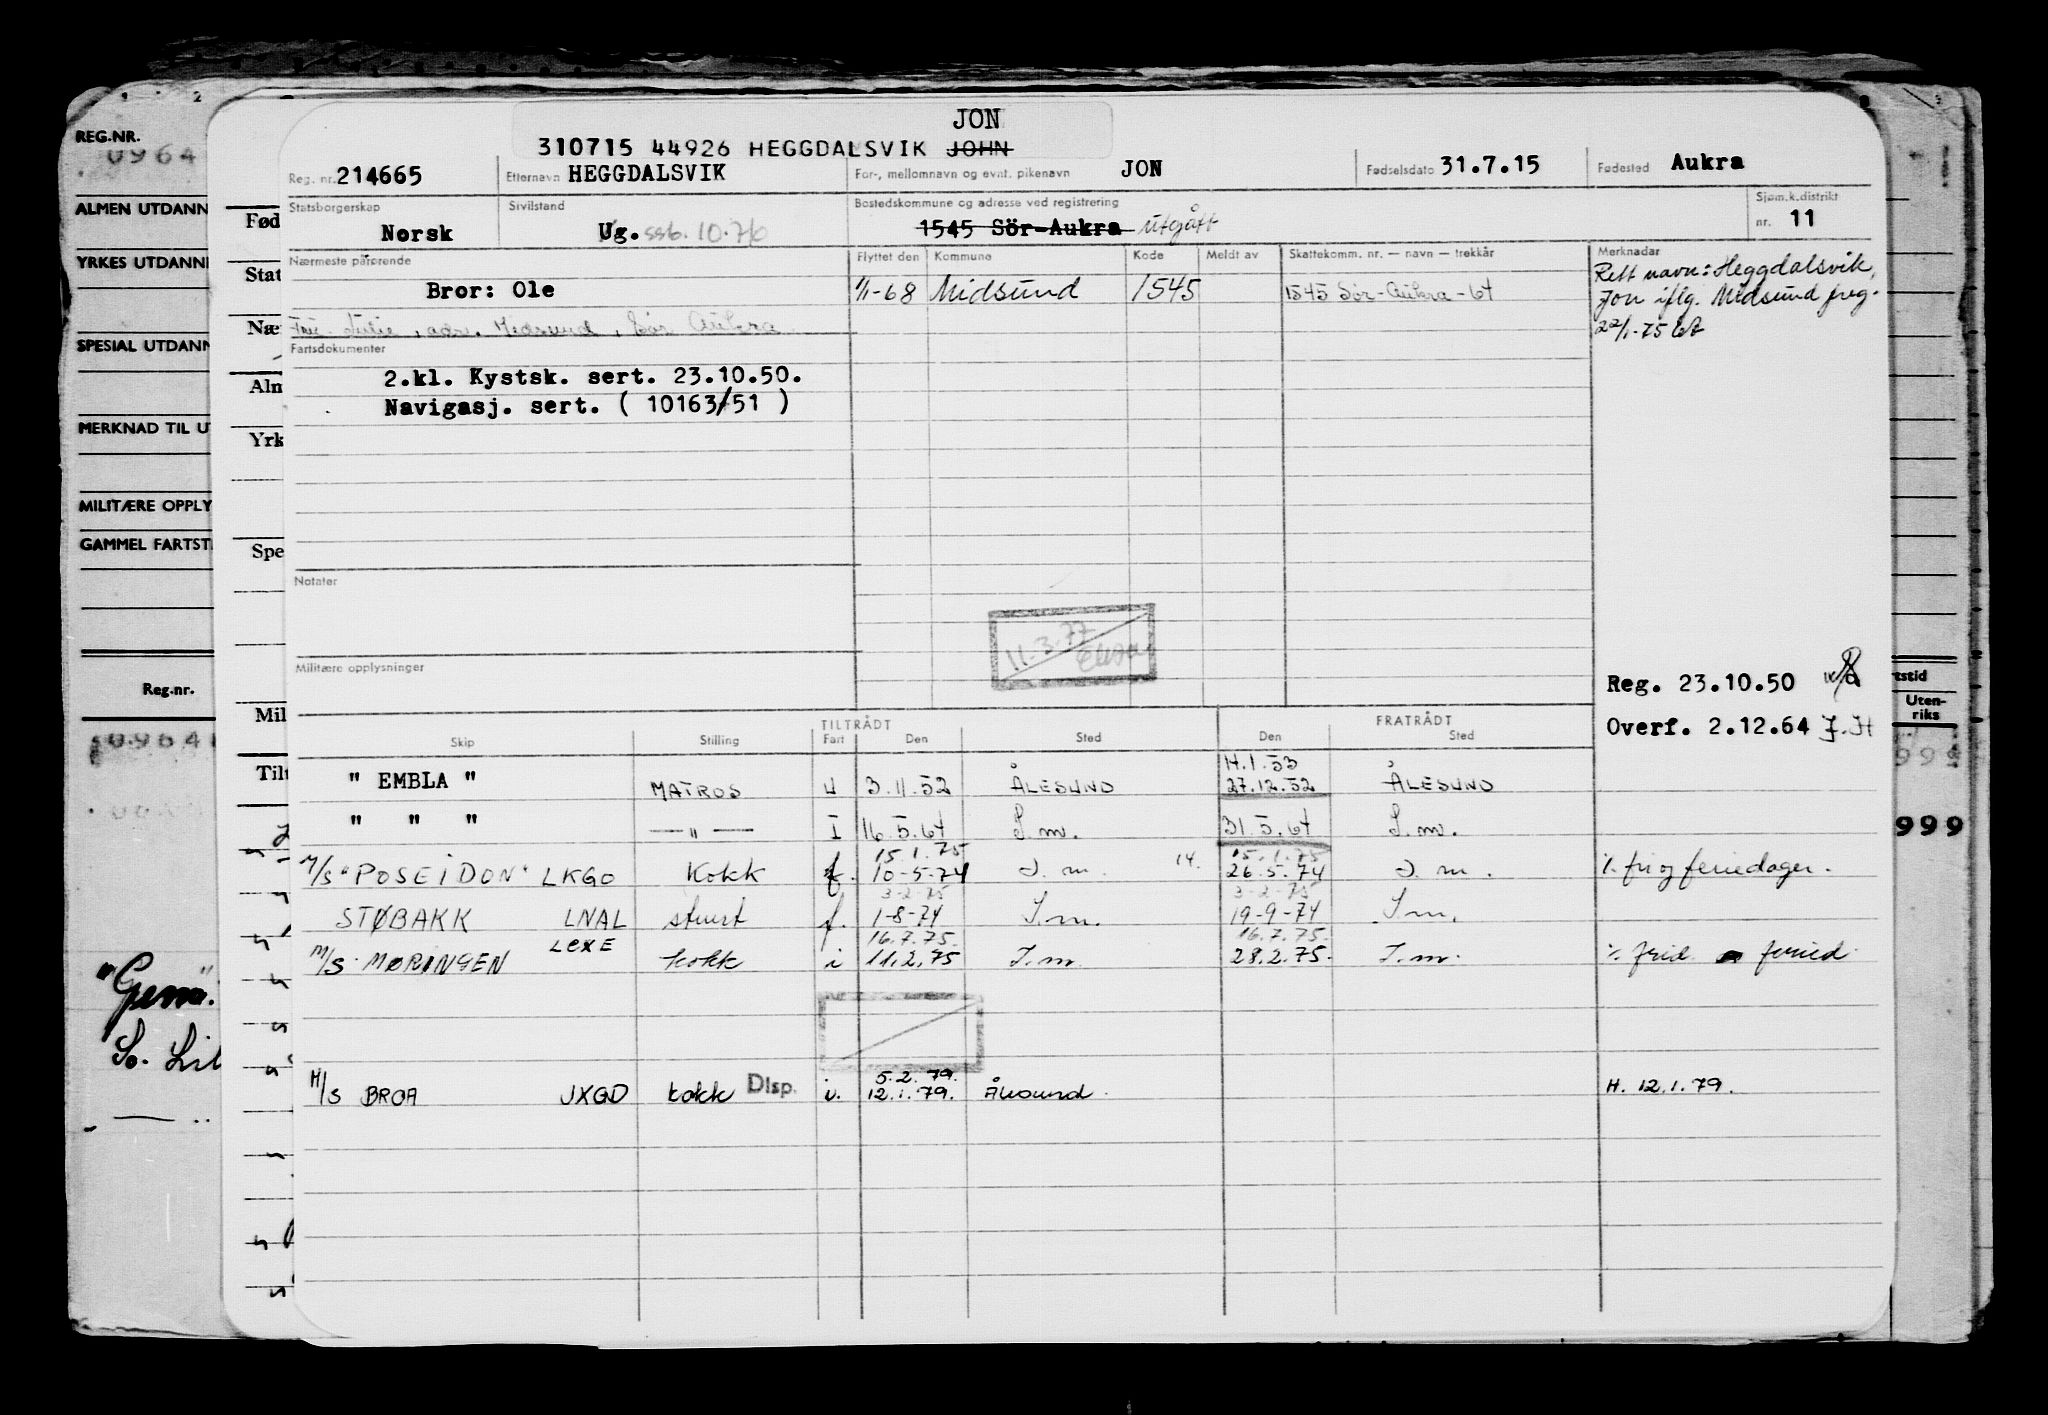 JON
310715 44926 HEGGDALSVIK JOHN
Reg. nr. 214665 Etternavn HEGGDALSVIK For-, mellomnavn og evnt. pikenavn JON Fødselsdato 31.7.15 Fødested Aukra
Statsborgerskap Norsk Sivilstand Ug. ssb. 10.76 Bostedskommune og adresse ved registrering 1545 Sör-Aukra utgått Sjøm.k.distrikt nr. 11
Nærmeste pårørende Flyttet den Kommune Kode Meldt av Skattekomm. nr. — navn — trekkår Merknadar
Bror: Ole 1/1-68 Midsund 1545 1545 Sør-Aukra-64
Rett navn: Heggdalsvik,
Jon iflg. Midsund freg.
22/1-75
Julie, adr. Midsund, Sør Aukra
Fartsdokumenter
2.kl. Kystsk. sert. 23.10.50.
Navigasj. sert. ( 10163/51 )
Notater
11.3.77
Militære opplysninger
Reg. 23.10.50
Overf. 2.12.64 J.H
TILTRÅDT FRATRÅDT
Skip Stilling Fart Den Sted Den Sted
14.1.53
" EMBLA " MATROS U 3.11.52 ÅLESUND 27.12.52 ÅLESUND
" " " — " — I 16.5.64 S.m. 31.5.64 S.m.
15.1.75 15.1.75
M/S "POSEIDON" LKGO Kokk f. 10-5-74 S.m. 14. 26.5.74 S.m. ⁒ fri og feriedager.
3-2-75 3-2-75
STØBAKK LNAL stuert f. 1-8-74 S.m. 19-9-74 S.m.
LCXE 16.7.75. 16.7.75.
M/S MØRINGEN kokk i 11.2.75 S.m 28.2.75. S.m. ⁒ frid feried.
5.2.79.
M/S BROA JXGD kokk Disp. u. 12.1.79. Ålesund. H. 12.1.79.
REG.NR.
0964
ALMEN UTDANN
YRKES UTDANN
SPESIAL UTDANN
MERKNAD TIL U
MILITÆRE OPPLY
GAMMEL FARTST
Reg.nr.
"Gem".
So. Lil
Fød
Stat
Næ
Aln
Yrk
Spe
Mil
Tilt
tstid
Uten-
riks
999
999